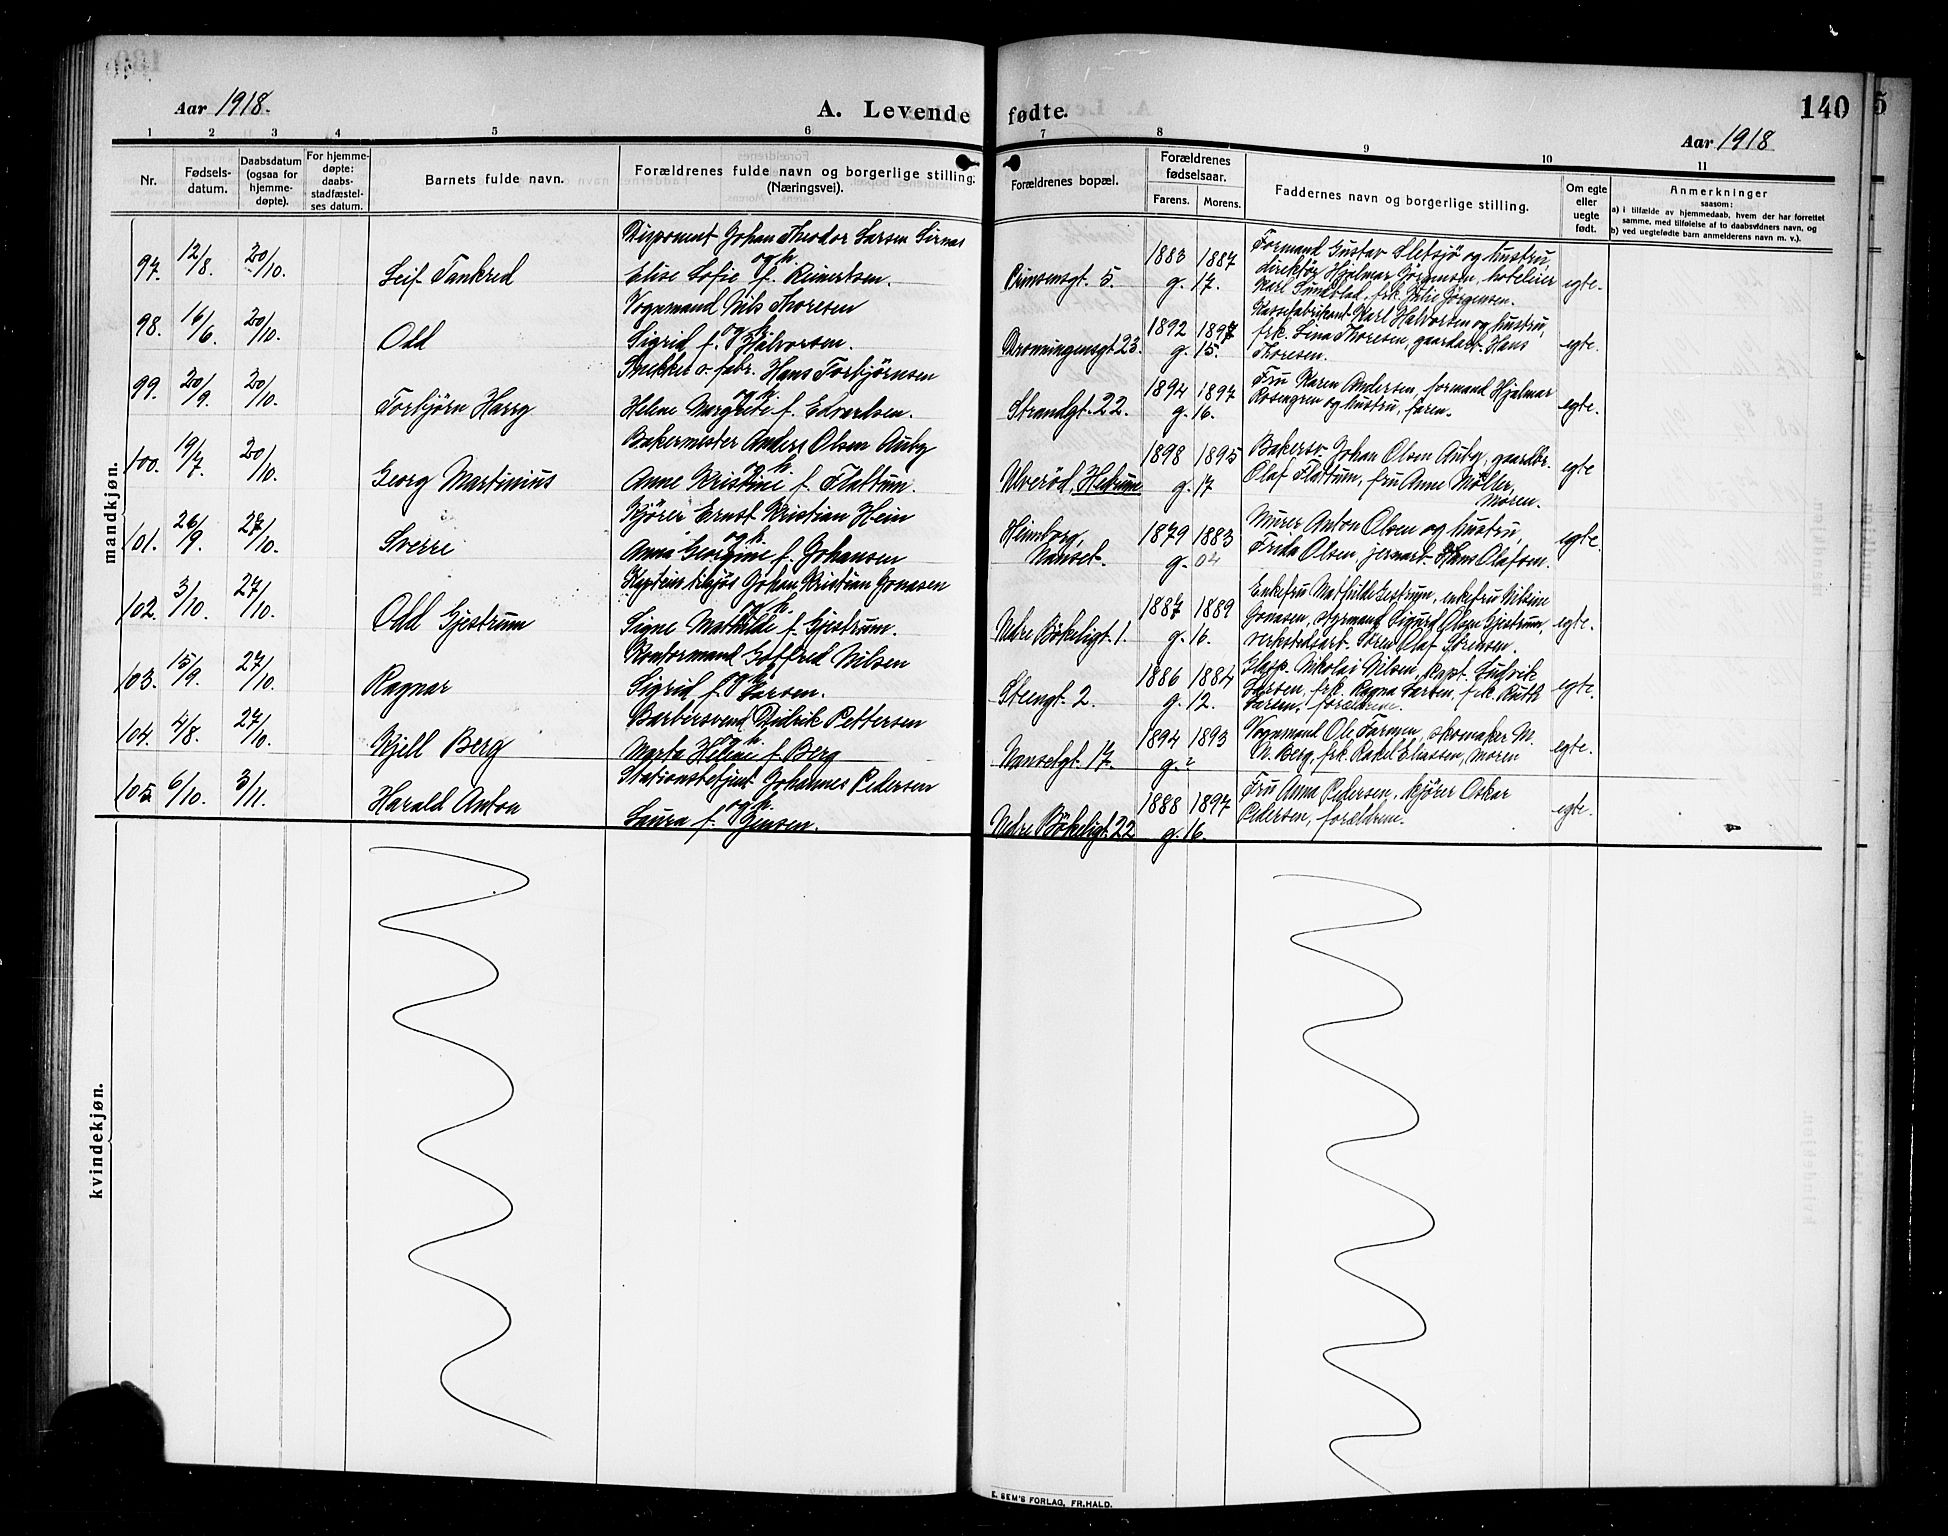 Aar 1918.
A. Levende fødte.
140
Aar 1918
1 2 3 4 5 6 7 8 9 10 11
Nr.
Fødsels-
datum.
Daabsdatum
(ogsaa for
hjemme-
døpte).
For hjemme-
døpte:
daabs-
stadfæstel-
ses datum.
Barnets fulde navn.
Forældrenes fulde navn og borgerlige stilling.
(Næringsvei).
Forældrenes bopæl.
Forældrenes
fødselsaar.
Farens. Morens.
Faddernes navn og borgerlige stilling.
Om egte
eller
uegte
født.
Anmerkninger
saasom:
a) i tilfælde av hjemmedaab, hvem der har forrettet
samme, med tilføielse av to daabsvidners navn, og
b) ved uegtefødte barn anmelderens navn m. v.).
mandkjøn.
Disponent Johan Theodor Larsen Sirnes
97. 12/8. 20/10. Leif Tankred
og h.
Elise Sofie f. Reinertsen.
Prinsensgt. 5.
1883 1887
g. 17.
Formand Gustav Sletsjö og hustru,
direktör Hjalmar Jörgensen, hoteleier
Karl Sundblad, frk. Julie Jörgensen.
egte.
Vognmand Nils Thoresen
98. 16/6. 20/10. Odd
og h.
Sigrid f. Halvorsen.
Dronningensgt. 23.
1892 1897
g. 15.
Karl Halvorsen og hustru,
frk. Lina Thoresen, gaardarb. Hans
Thoresen.
egte.
Snekker o. fabr. Hans Torbjörnsen
99. 20/9. 20/10. Torbjörn Harry
og h.
Helene Margrete f. Edvardsen.
Strandgt. 22.
1894 1897
g. 16.
Fru Karen Andersen, formand Hjalmar
Rosengren og hustru, faren.
egte.
Bakermester Anders Olsen Auby
100. 19/7. 20/10. Georg Martinius
og h.
Anne Kristine f. Flattum.
Ulveröd, Hedrum
1898 1895
g. 17
Bakersv. Johan Olsen Auby, gaardbr.
Olaf Flattum, fru Anne Möller,
moren.
egte
Kjører Ernst Kristian Hein
101. 26/9. 27/10. Sverre
og h.
Anna Georgine f. Johansen
Heimborg,
Nanset.
1879 1883
g. 04
Murer Anton Olsen og hustru,
Frida Olsen, jernarb. Hans Olafsen.
egte.
Kaptein tilsjøs Johan Kristian Jonasen
102. 3/10. 27/10. Odd Gjestrum
og h.
Signe Mathilde f. Gjestrum.
Nedre Bökeligt. 1.
1887 1889
g. 16.
Enkefru Mathilde Gjestrum, enkefru Nilsine
Jonasen, styrmand Sigurd Olsen Gjestrum,
verkstedsarb. Sören Olaf Sörensen.
egte.
Kontormand Gotfred Nilsen
103. 15/9. 27/10. Ragnar
og h.
Sigrid f. Larsen.
Stengt. 2.
1886 1884
g. 12.
Nikolai Nilsen, kapt. Ludvik
Larsen, frk. Ragna Larsen, frk. Ruth
Larsen, forældrene.
egte.
Barbersvend Didrik Pettersen
104. 4/8. 27/10. Kjell Berg
og h.
Marta Helene f. Berg
Nansetgt. 17.
1894 1893
g. ?
Vognmand Ole Farmen, skomaker M.
N. Berg, frk. Rakel Eliassen, moren
egte.
Stationsbetjent Johannes Pedersen
105. 6/10. 3/11. Harald Anton
og h.
Laura f. Jensen.
Nedre Bökeligt. 22
1888 1897
g. 16.
Fru Anna Pedersen, kjører Oskar
Pedersen, forældrene.
egte.
kvindekjøn.
E. SEM'S FORLAG, FR.HALD.